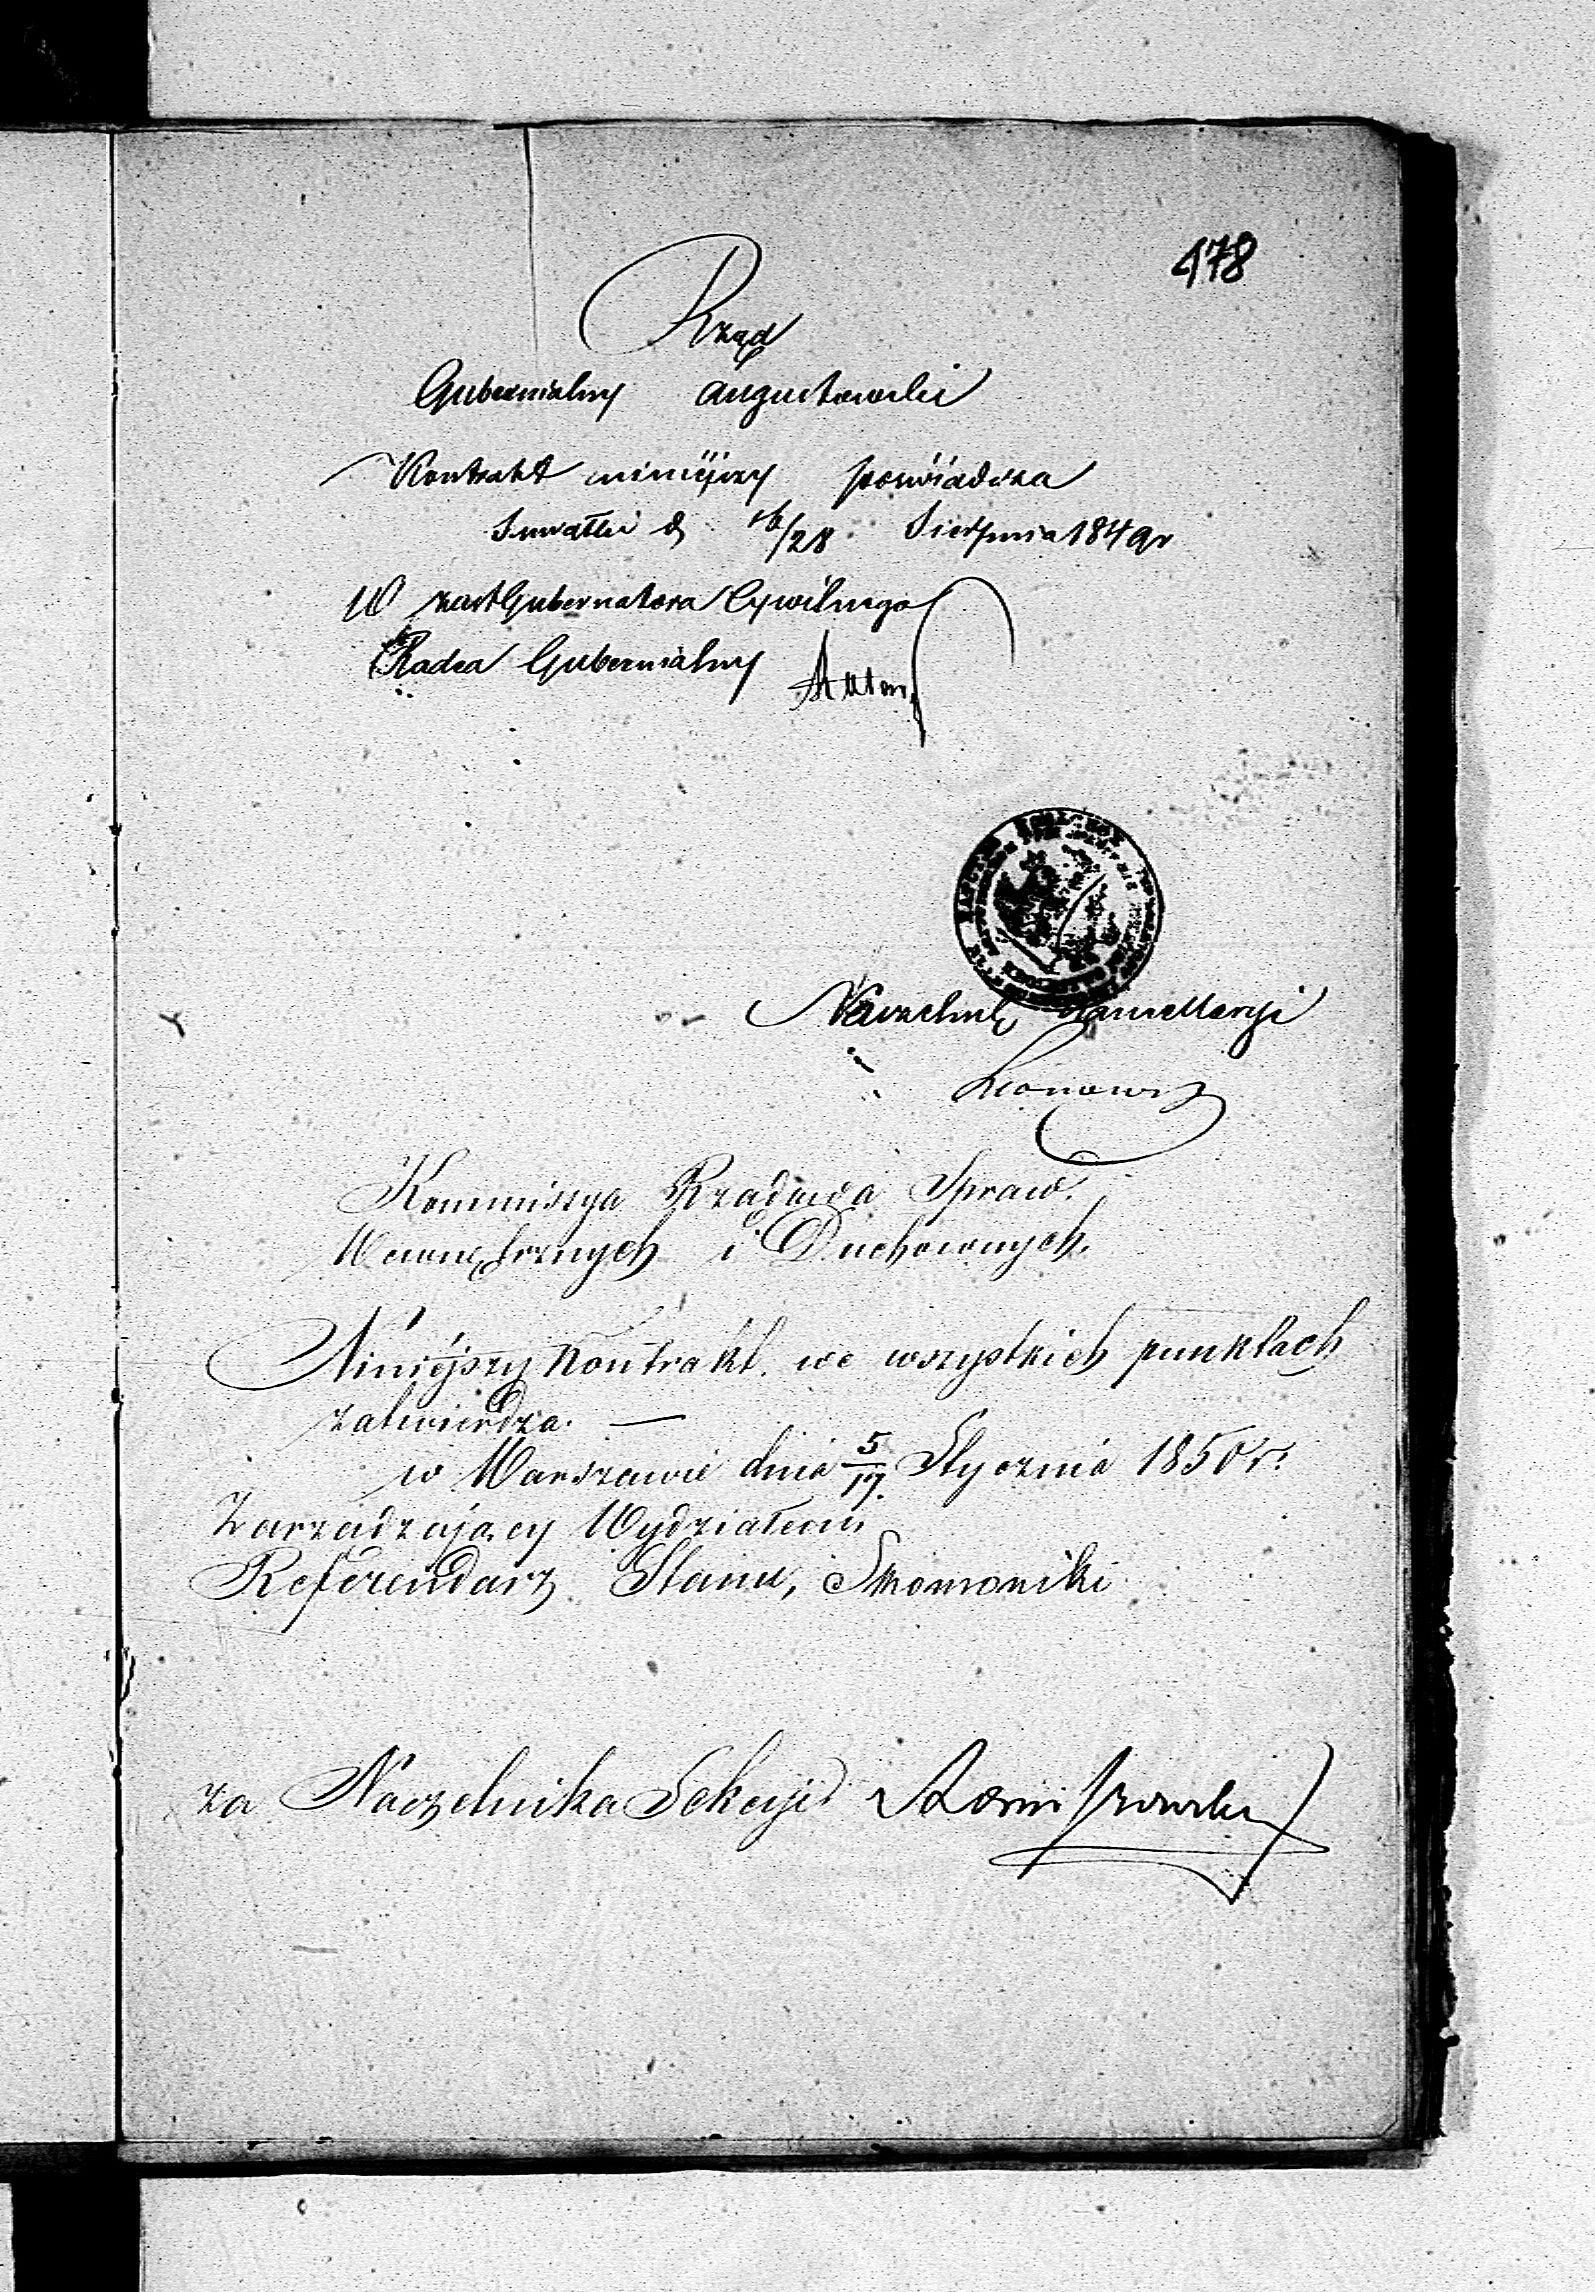 478
Rząd
Gubernialny Augustowski
Kontrakt niniéjszy poświadcza
Suwałki d 16/28 Sierpnia 1849 r
W zast Gubernatora Cywilnego
Radca Gubernialny
Naczelnik Kancellaryi
Kommissya Rządowa Spraw
Wewnętrznych i Duchownych.
Niniéjszy Kontrakt we wszystkich punktach
zatwierdza. —
w Warszawie dnia 5/17. Stycznia 1850 r.
Zarządzający Wydziałem
Referendarz Stanu,
za Naczelnika Sekcyi